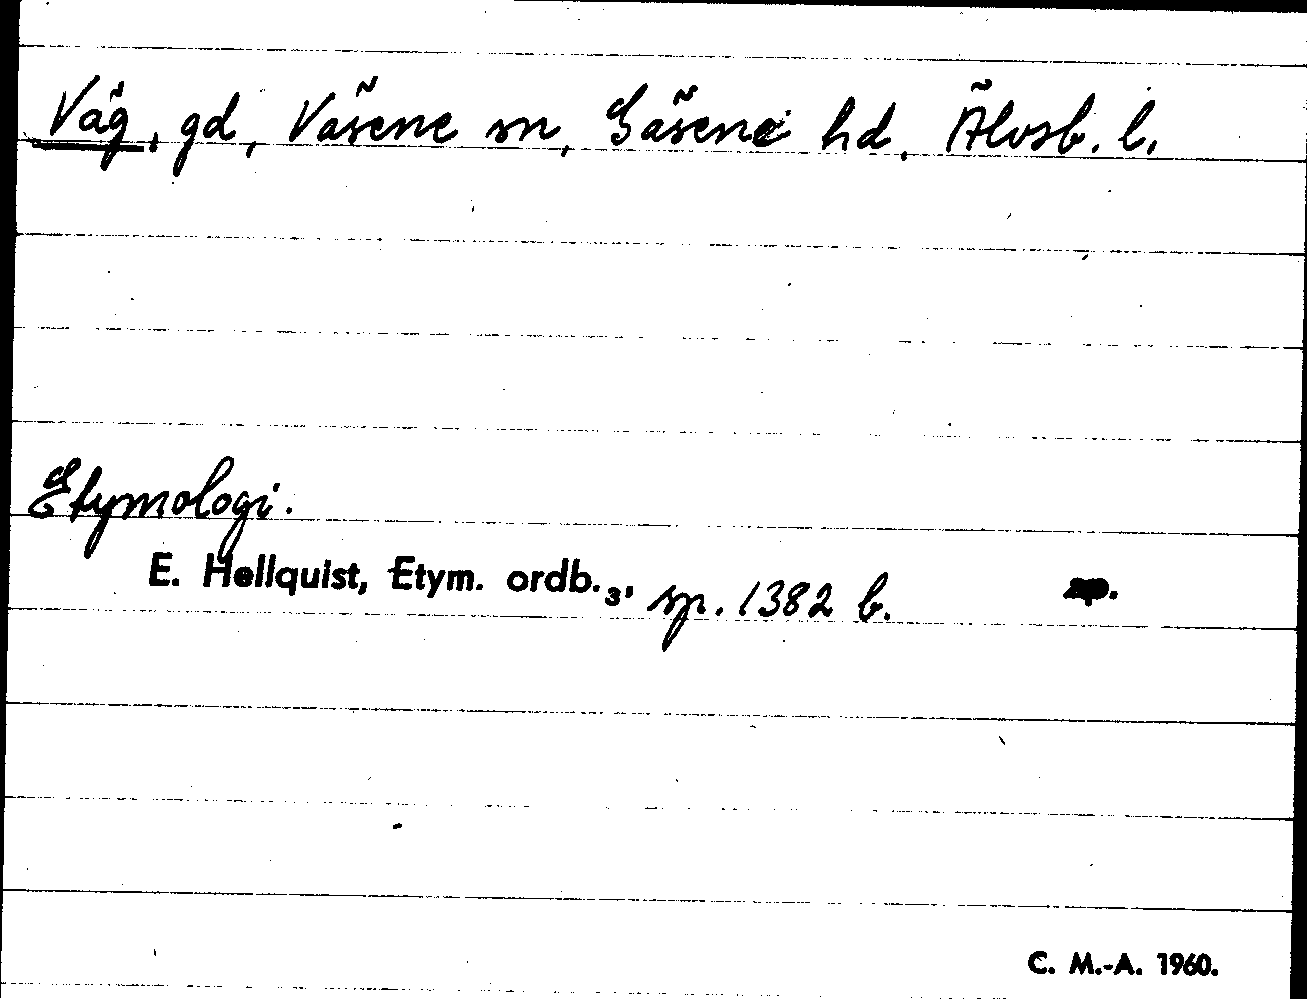 Väg, gd, Väsene sn, Gäsene hd, Älvsb. l.
Etymologi.
E. Hellquist, Etym. ordb.3, sp. 1382 b.
C. M.-A. 1960.